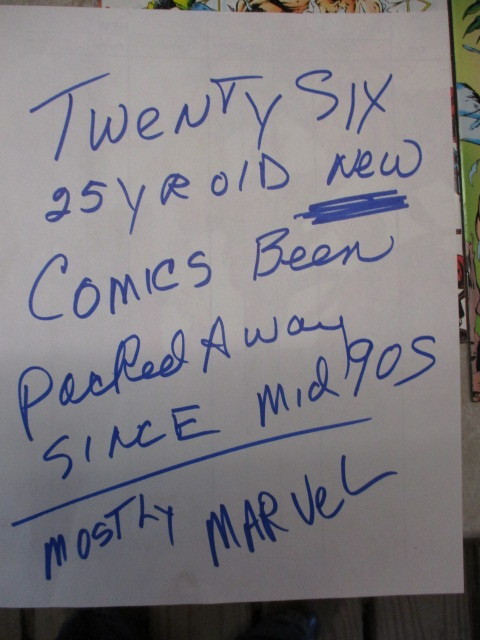 TWENTY SIX
25 YR OlD NEW
COMICS Been
Packed Away
SINCE Mid 90S
MOSTLY MARVEL